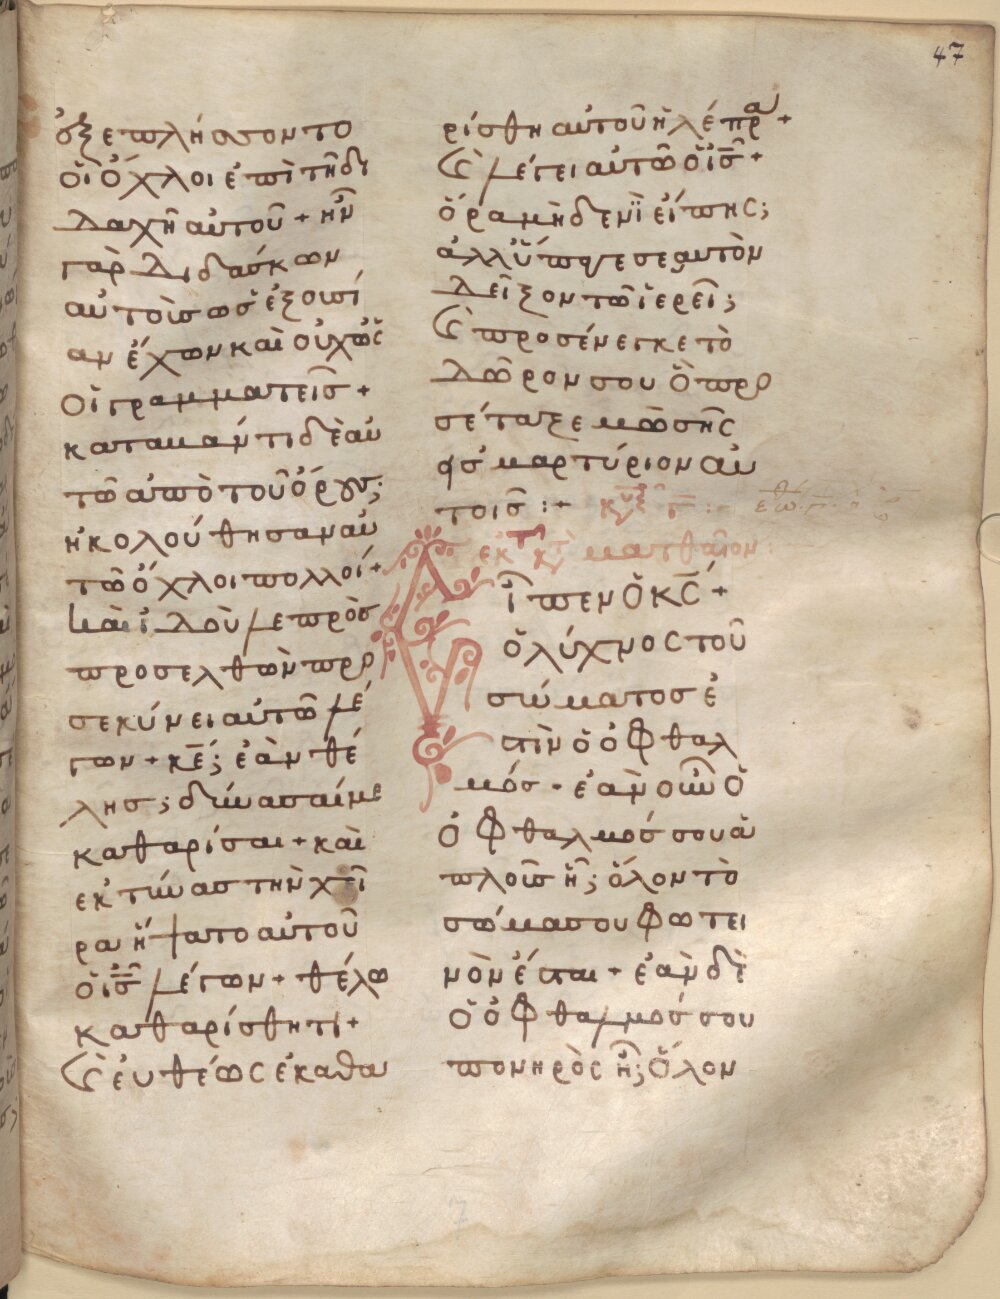 47
ὁξεπλήσσοντο
οἱ ὄχλοι ἐπὶ τῆ δι
δαχῆ αὐτοῦ + ἦν
γὰρ διδάσκων
αὐτοὺσ ὡσ ἐξουσί
αν ἔχων καὶ οὐχ ὡς
οἱ γραμματεῖσ +
καταβάντι δὲ αὐ
τῶ ἀπὸ τοῦ ὄρους;
ἠκολούθησαν αὐ
τῶ ὄχλοι πολλοί +
καὶ ἰδοὺ λεπρὸσ
προσελθὼν προ
σεκύνει αὐτῶ λέ
γων + κ̅ε̅; ἐὰν θέ
λησ; δύνασαί με
καθαρίσαι + καὶ
ἐκτείνασ τὴν χεῖ
ρα ἥψατο αὐτοῦ
ὁ ι̅σ̅ λέγων + θέλω
καθαρίσθητι +
καὶ εὐθέως ἐκαθα
ρίσθη αὐτοῦ ἡ λέπρα +
καὶ λέγει αὐτῶ ὁ ι̅σ̅ +
ὅρα μὴδενὶ εἴπης;
ἀλλ' ὕπαγε σεαυτὸν
δεῖξον τῶ ἱερεῖ;
καὶ προσένεγκε τὸ
δῶρον σου ὃ προ
σέταξε μωσῆς
εἰσ μαρτύριον αυ
τοισ :+ κυ
ἐκ τ κτ ματθαῖον:
εἶπεν ὁ κ̅ς̅ +
ὁ λύχνος τοῦ
σώματοσ ἐ
στὶν ὁ ὀφθαλ
μόσ · ἐὰν οὖν ὁ
ὀφθαλμόσ σου ἁ
πλοῦσ ἦ; ὅλον τὸ
σῶμα σου φωτει
νὸν ἔσται + ἐὰν δὲ
ὁ ὀφθαλμόσ σου
πονηρὸς ἦ; ὅλον